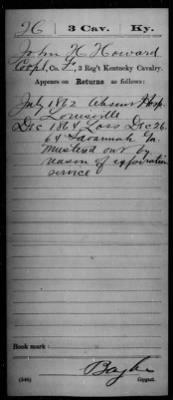 H | 3 Cav. | Ky.
John H Howard
Corpl, Co. F, 3 Reg't Kentucky Cavalry.
Appears on Returns as follows:
July 1862 Absent Hosp.
Louisville
Dec 1864 Loss Dec 26.
64 Savannah Ga.
Mustered out by
reason of expiration
service
Book mark:
(546)
Copyist.